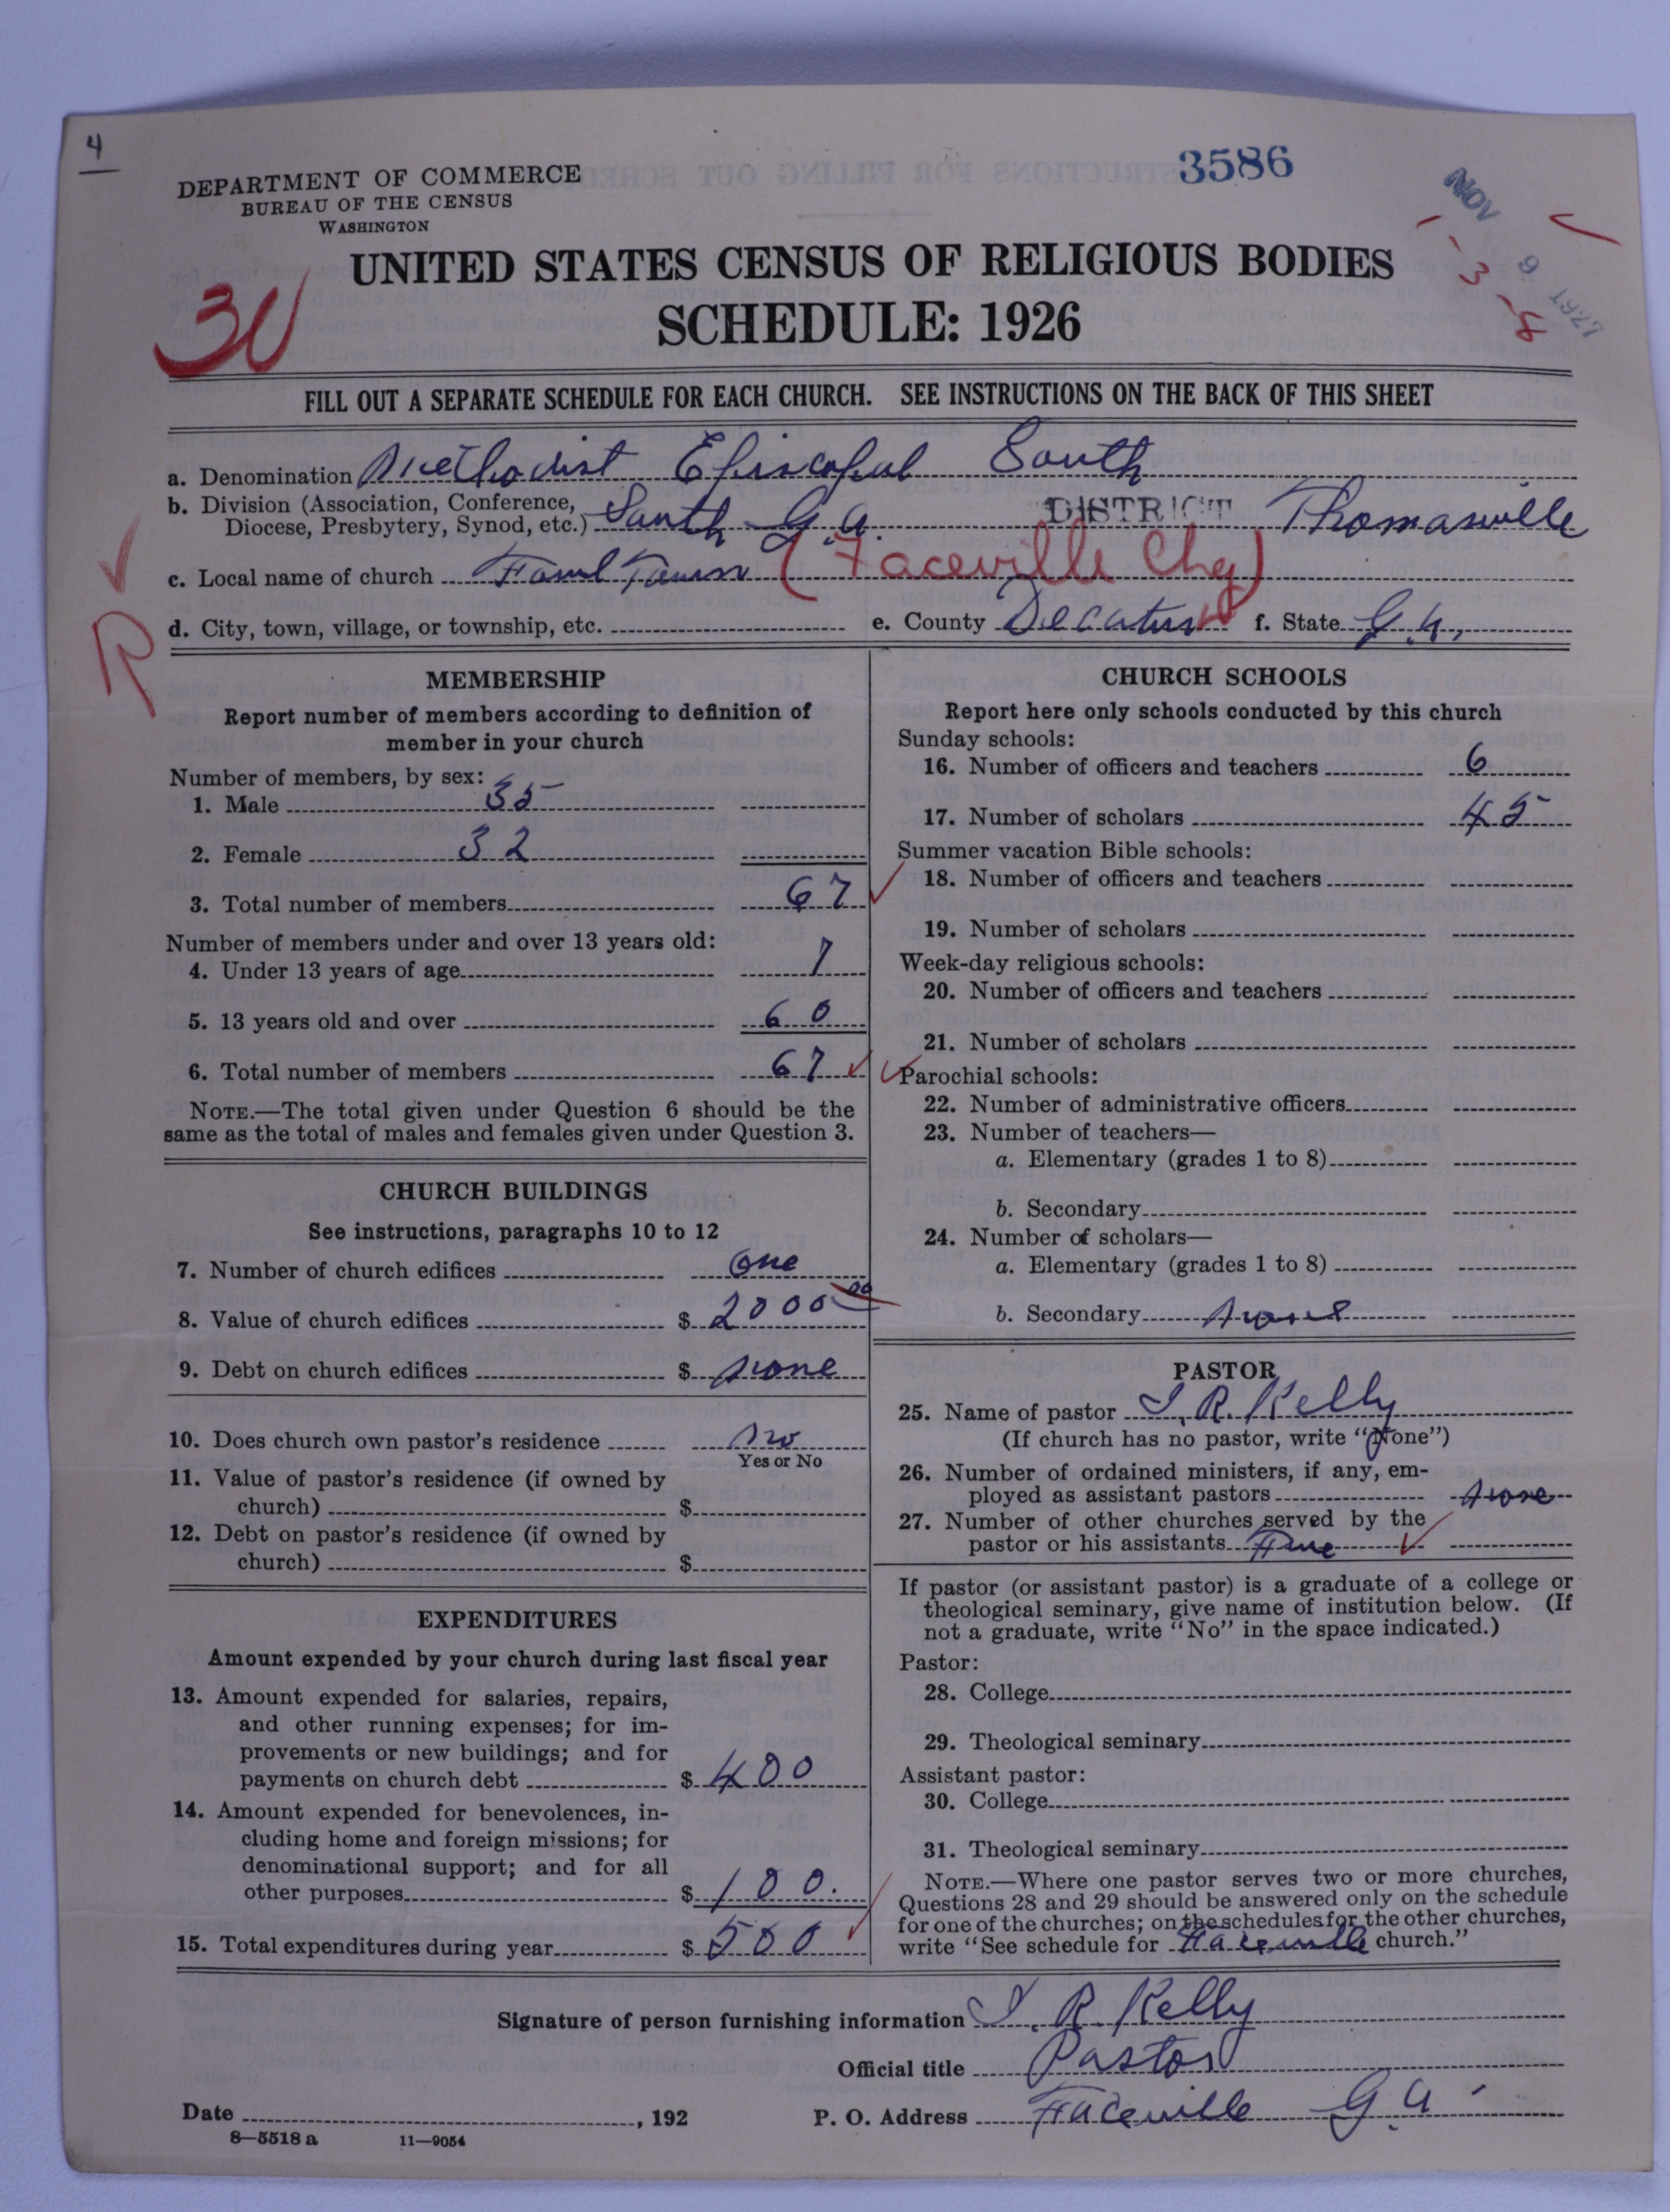 4
3586
DEPARTMENT OF COMMERCE
BUREAU OF THE CENSUS
WASHINGTON
NOV 9 1927
1-3-8
UNITED STATES CENSUS OF RELIGIOUS BODIES
SCHEDULE: 1926
FILL OUT A SEPARATE SCHEDULE FOR EACH CHURCH. SEE INSTRUCTIONS ON THE BACK OF THIS SHEET
a. Denomination Methodist Episcopal South
b. Division (Association, Conference,
Diocese, Presbytery, Synod, etc.) South G.a. DISTRICT Thomasville
c. Local name of church (Faceville Chg)
d. City, town, village, or township, etc. e. County Decatur f. State G.a.
R
MEMBERSHIP
Report number of members according to definition of
member in your church
Number of members, by sex:
1. Male 35
2. Female 32
3. Total number of members 67
Number of members under and over 13 years old:
4. Under 13 years of age 7
5. 13 years old and over 60
6. Total number of members 67
NOTE.—The total given under Question 6 should be the
same as the total of males and females given under Question 3.
CHURCH BUILDINGS
See instructions, paragraphs 10 to 12
7. Number of church edifices one
8. Value of church edifices $ 2000 00
9. Debt on church edifices $ none
10. Does church own pastor's residence no
Yes or No
11. Value of pastor's residence (if owned by
church) $
12. Debt on pastor's residence (if owned by
church) $
EXPENDITURES
Amount expended by your church during last fiscal year
13. Amount expended for salaries, repairs,
and other running expenses; for im-
provements or new buildings; and for
payments on church debt $ 400
14. Amount expended for benevolences, in-
cluding home and foreign missions; for
denominational support; and for all
other purposes $ 100.
15. Total expenditures during year $ 500
CHURCH SCHOOLS
Report here only schools conducted by this church
Sunday schools:
16. Number of officers and teachers 6
17. Number of scholars 45
Summer vacation Bible schools:
18. Number of officers and teachers
19. Number of scholars
Week-day religious schools:
20. Number of officers and teachers
21. Number of scholars
Parochial schools:
22. Number of administrative officers
23. Number of teachers—
a. Elementary (grades 1 to 8)
b. Secondary
24. Number of scholars—
a. Elementary (grades 1 to 8)
b. Secondary none
PASTOR
25. Name of pastor I. R. Kelly
(If church has no pastor, write "None")
26. Number of ordained ministers, if any, em-
ployed as assistant pastors none
27. Number of other churches served by the
pastor or his assistants
If pastor (or assistant pastor) is a graduate of a college or
theological seminary, give name of institution below. (If
not a graduate, write "No" in the space indicated.)
Pastor:
28. College
29. Theological seminary
Assistant pastor:
30. College
31. Theological seminary
NOTE.—Where one pastor serves two or more churches,
Questions 28 and 29 should be answered only on the schedule
for one of the churches; on the schedules for the other churches,
write "See schedule for Faceville church."
Signature of person furnishing information I. R. Kelly
Official title Pastor
Date , 192 P. O. Address Faceville G.a.
8—5518 a 11—9054